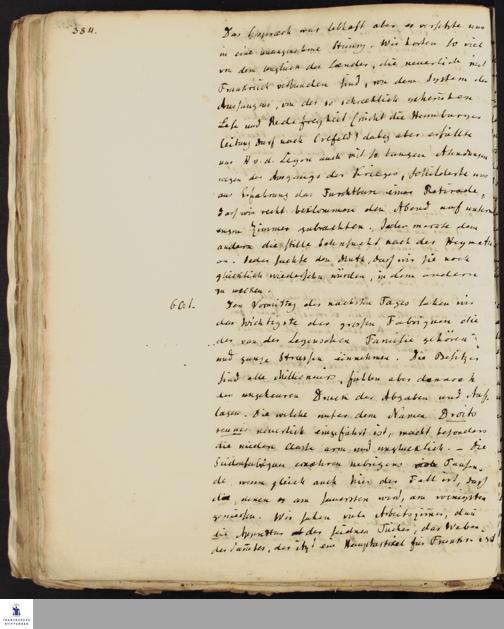 384.
Das Gespräch war lebhaft aber es versetzte uns
in eine unangenehme Stimung. Wir hörten so viel
von dem Unglück der Länder, die neuerlich mit
Frankreich verbunden sind, von dem System der
von der so schrecklich gehemten
Lese und Redefreyheit (nicht die Hamburger
Zeitung darf nach Crefeld) dabey aber erfüllte
uns H v. d. Leyen auch mit so bangen Ahndungen
wegen des Ausgangs des Krieges, schilderte uns
aus Erfahrung das Furchtbare einer Retirade,
daß wir recht beklommen den Abend auf unserm
Zimmer zubrachten. Jeder merkte dem
andern die stille Sehnsucht nach der Heymath
an. Jeder suchte den Muth, daß wir sie noch
glücklich wiedersehn würden, in dem andern
zu wecken.
6 Oct. Den Vormittag des nächsten Tages sahen wir
das Wichtigste der großen Fabriquen die
der von der Leyenschen Familie gehören
und ganze Strassen einnehmen. Die Besitzer
sind alle Millionairs, fühlen aber dennoch
den ungeheuren Druck der Abgaben und Auf-
lagen. Die welche unter dem Namen Droits
neuerlich eingeführt ist, macht besonders
die niedere Classe arm und unglücklich. – Die
Seidenfabriquen ernähren uebrigens Tausen-
de, wenn gleich auch hier der Fall ist, daß
die, denen es am sauersten wird, am wenigsten
geniessen. Wir sahen viele Arbeitszimmer, dann
die Appretur der seidnen Tücher, das Weben
des Samtes, der itzt ein Hauptartikel für Frankreich ist
FRANCKESCHE
STIFTUNGEN